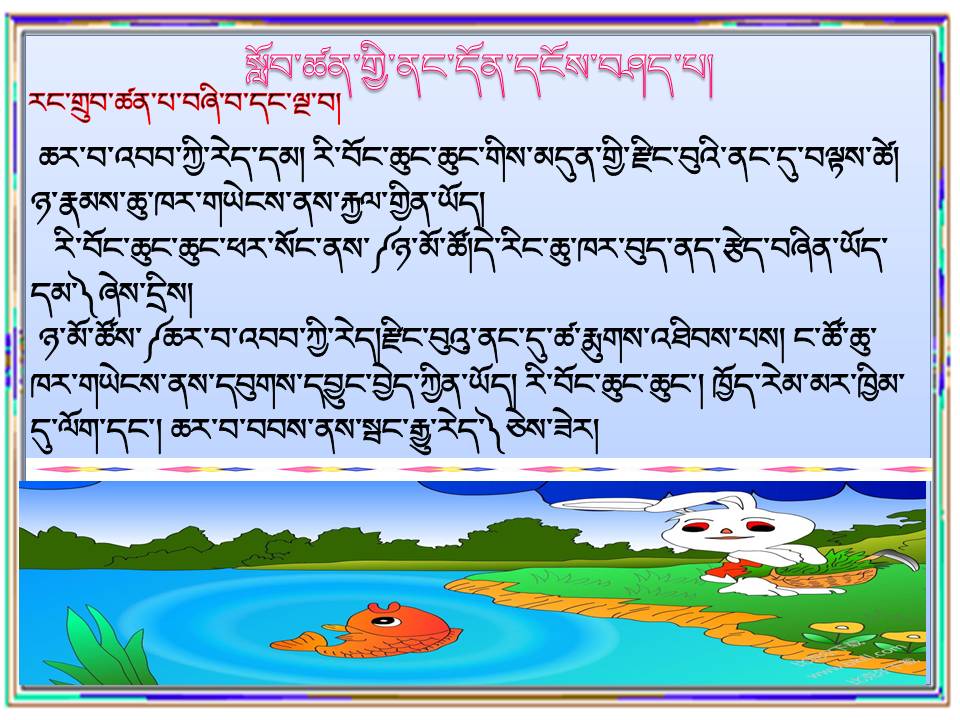 སློབ་ཚན་གྱི་ནང་དོན་དངོས་བཤད་པ།
རང་གྲུབ་ཚན་པ་བཞི་བ་དང་ལྔ་བ།
ཆར་བ་འབབ་ཀྱི་རེད་དམ། རི་བོང་ཆུང་ཆུང་གིས་མདུན་གྱི་རྫིང་བུའི་ནང་དུ་བལྟས་ཚེ།
ཉ་རྣམས་ཆུ་ཁར་གཡེངས་ནས་རྐྱལ་གྱིན་ཡོད།
རི་བོང་ཆུང་ཆུང་ཕར་སོང་ནས་༼ཉ་མོ་ཚོ།དེ་རིང་ཆུ་ཁར་བུད་ནད་རྩེད་བཞིན་ཡོད་
དམ༽ཞེས་དྲིས།
ཉ་མོ་ཚོས་༼ཆར་བ་འབབ་ཀྱི་རེད།རྫིང་བུའུ་ནང་དུ་ཚ་རླུགས་འཐིབས་པས། ང་ཚོ་ཆུ་
ཁར་གཡེངས་ནས་དབུགས་དབྱུང་བྱེད་ཀྱིན་ཡོད། རི་བོང་ཆུང་ཆུང་། ཁྱོད་རེམ་མར་ཁྱིམ་
དུ་ལོག་དང་། ཆར་བ་བབས་ནས་སྦང་རྒྱུ་རེད༽ཅེས་ཟེར།